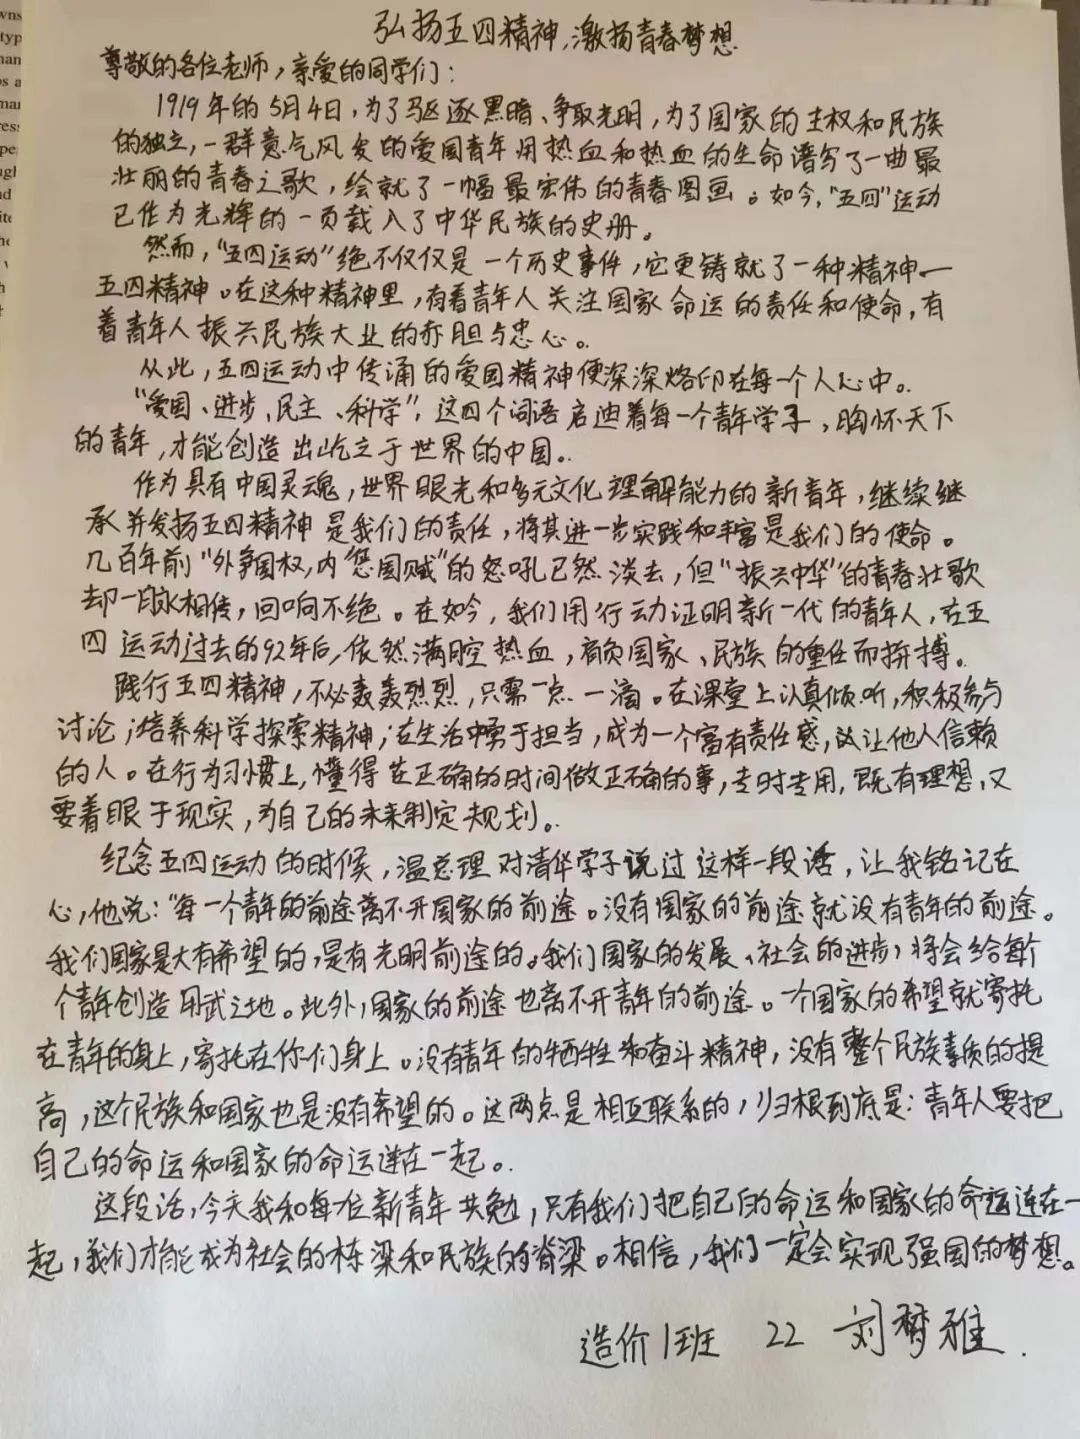 弘扬五四精神,激扬青春梦想
尊敬的各位老师,亲爱的同学们:
1919年的5月4日,为了驱逐黑暗、争取光明,为了国家的主权和民族
的独立,一群意气风发的爱国青年用热血和热血的生命谱写了一曲最
壮丽的青春之歌,绘就了一幅最宏伟的青春图画。如今,"五四"运动
已作为光辉的一页载入了中华民族的史册。
然而,"五四运动"绝不仅仅是一个历史事件,它更铸就了一种精神—
五四精神。在这种精神里,有着青年人关注国家命运的责任和使命,有
着青年人振兴民族大业的赤胆与忠心。
从此,五四运动中传诵的爱国精神便深深烙印在每一个人心中。
"爱国、进步、民主、科学",这四个词语启迪着每一个青年学子,胸怀天下
的青年,才能创造出屹立于世界的中国。
作为具有中国灵魂,世界眼光和多元文化理解能力的新青年,继续继
承并发扬五四精神是我们的责任,将其进一步实践和丰富是我们的使命。
几百年前"外争国权,内惩国贼"的怒吼已然淡去,但"振兴中华"的青春壮歌
却一脉相传,回响不绝。在如今,我们用行动证明新一代的青年人,在五
四运动过去的92年后,依然满腔热血,肩负国家、民族的重任而拼搏。
践行五四精神,不必轰轰烈烈,只需一点一滴。在课堂上认真倾听,积极参与
讨论;培养科学探索精神;在生活中勇于担当,成为一个富有责任感,让他人信赖
的人。在行为习惯上,懂得在正确的时间做正确的事,专时专用,既有理想,又
要着眼于现实,为自己的未来制定规划。
纪念五四运动的时候,温总理对清华学子说过这样一段话,让我铭记在
心,他说:"每一个青年的前途离不开国家的前途。没有国家的前途就没有青年的前途。
我们国家是大有希望的,是有光明前途的。我们国家的发展、社会的进步,将会给每个
个青年创造用武之地。此外,国家的前途也离不开青年的前途。一个国家的希望就寄托
在青年的身上,寄托在你们身上。没有青年的牺牲和奋斗精神,没有整个民族素质的提
高,这个民族和国家也是没有希望的。这两点是相互联系的,归根到底是:青年人要把
自己的命运和国家的命运连在一起。
这段话,今天我和每位新青年共勉,只有我们把自己的命运和国家的命运连在一
起,我们才能成为社会的栋梁和民族的脊梁。相信,我们一定会实现强国的梦想。
造价1班 22 刘梦雅